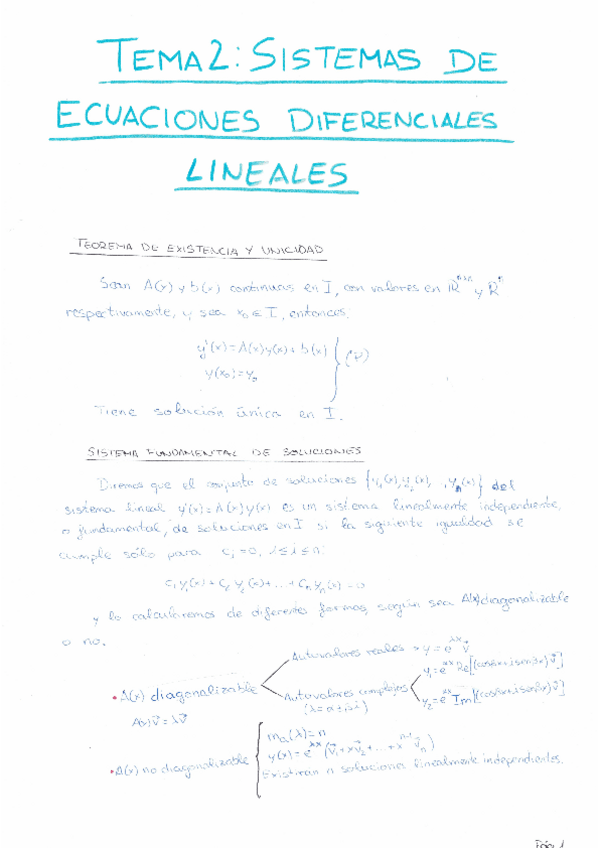 TEMA 2: SISTEMAS DE
ECUACIONES DIFERENCIALES
LINEALES
TEOREMA DE EXISTENCIA Y UNICIDAD
Sean A(x) y b(x) continuas en I, con valores en ℝⁿˣⁿ y ℝⁿ
respectivamente, y sea x₀ ∈ I, entonces:
y'(x) = A(x)y(x) + b(x)
y(x₀) = y₀
Tiene solución única en I.
SISTEMA FUNDAMENTAL DE SOLUCIONES
Diremos que el conjunto de soluciones {y₁(x), y₂(x), , yₙ(x)} del
sistema lineal y'(x) = A(x)y(x) es un sistema linealmente independiente,
o fundamental, de soluciones en I si la siguiente igualdad se
cumple sólo para cᵢ = 0, 1 ≤ i ≤ n:
c₁y₁(x) + c₂y₂(x) + ... + cₙyₙ(x) = 0
y lo calcularemos de diferentes formas, según sea A(x) diagonalizable
o no.
Autovalores reales → y = e^{λx} v⃗
• A(x) diagonalizable
A(x)v⃗ = λv⃗
Autovalores complejos
(λ = α ± βi)
y₁ = e^{αx} Re[(cosβx + i senβx) v⃗]
y₂ = e^{αx} Im[(cosβx + i senβx) v⃗]
• A(x) no diagonalizable
mₐ(λ) = n
y(x) = e^{λx} (v⃗₁ + x v⃗₂ + ... + x^{n-1} v⃗ₙ)
Existirán n soluciones linealmente independientes.